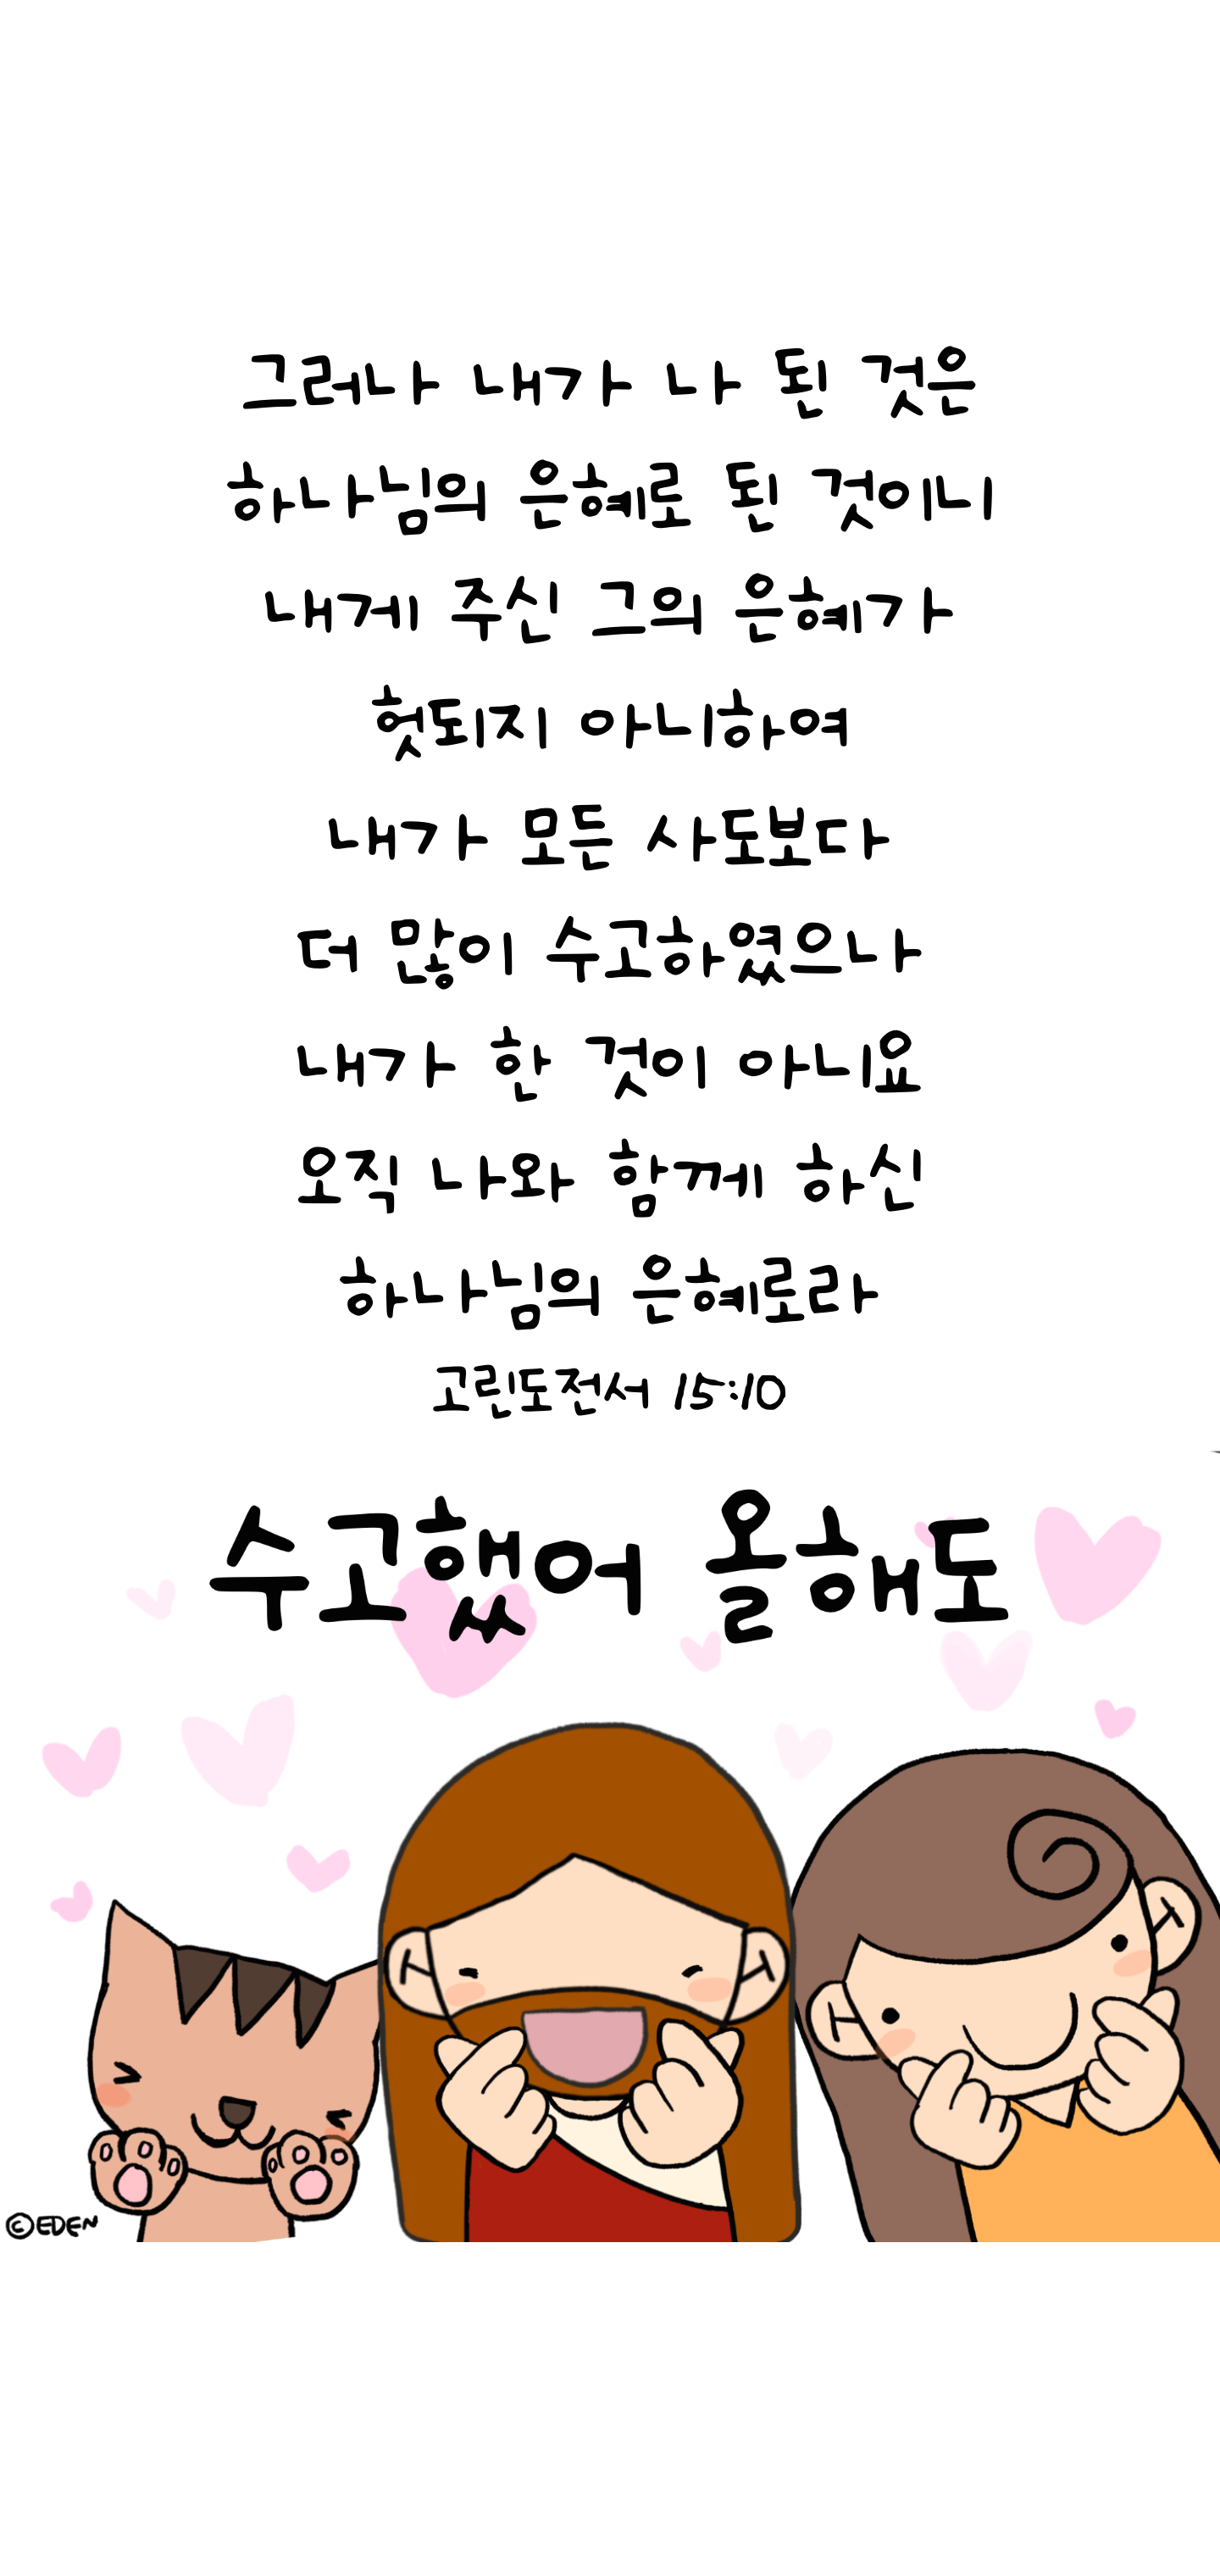 그러나 내가 나 된 것은
하나님의 은혜로 된 것이니
내게 주신 그의 은혜가
헛되지 아니하여
내가 모든 사도보다
더 많이 수고하였으나
내가 한 것이 아니요
오직 나와 함께 하신
하나님의 은혜로라
고린도전서 15:10
수고했어 올해도
©EDEN